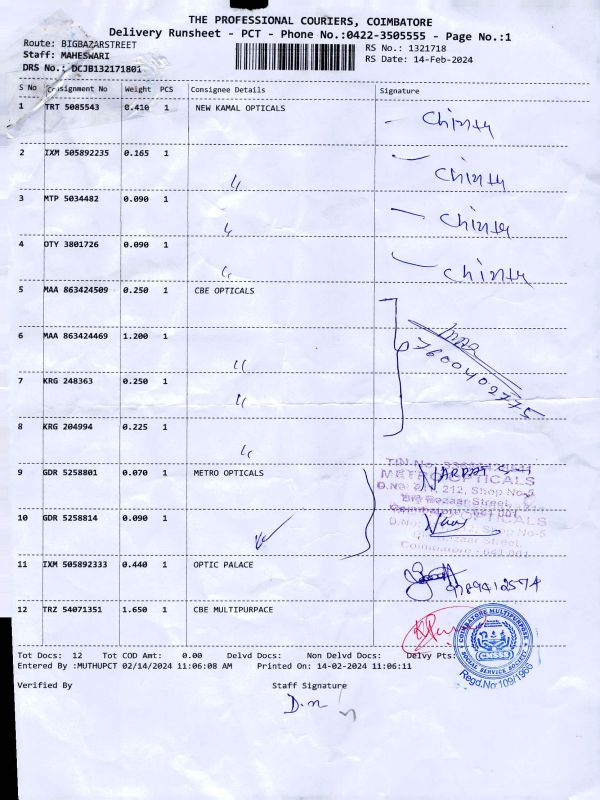 THE PROFESSIONAL COURIERS, COIMBATORE
Delivery Runsheet - PCT - Phone No.:0422-3505555 - Page No.:1
Route: BIGBAZARSTREET
Staff: MAHESWARI
DRS No.: DCJB132171801
RS No.: 1321718
RS Date: 14-Feb-2024
S No Consignment No Weight PCS Consignee Details Signature
1 TRT 5085543 0.410 1 NEW KAMAL OPTICALS Chinty
2 IXM 505892235 0.165 1 〃 Chinty
3 MTP 5034482 0.090 1 〃 Chinty
4 OTY 3801726 0.090 1 〃 Chinty
5 MAA 863424509 0.250 1 CBE OPTICALS
6 MAA 863424469 1.200 1 〃 7600402775
7 KRG 248363 0.250 1 〃
8 KRG 204994 0.225 1 〃
9 GDR 5258801 0.070 1 METRO OPTICALS
METRO OPTICALS
212, Shop No-
Big Bazaar Street,
Coimbatore - 641 001
10 GDR 5258814 0.090 1
Shop No-5
Coimbatore - 641 001
11 IXM 505892333 0.440 1 OPTIC PALACE 9789412574
12 TRZ 54071351 1.650 1 CBE MULTIPURPACE
COIMBATORE MULTIPURPOSE SOCIAL SERVICE SOCIETY
Regd.No 109/1966
Tot Docs: 12 Tot COD Amt: 0.00 Delvd Docs: Non Delvd Docs: Delvy Pts:
Entered By :MUTHUPCT 02/14/2024 11:06:08 AM Printed On: 14-02-2024 11:06:11
Verified By Staff Signature
D.m